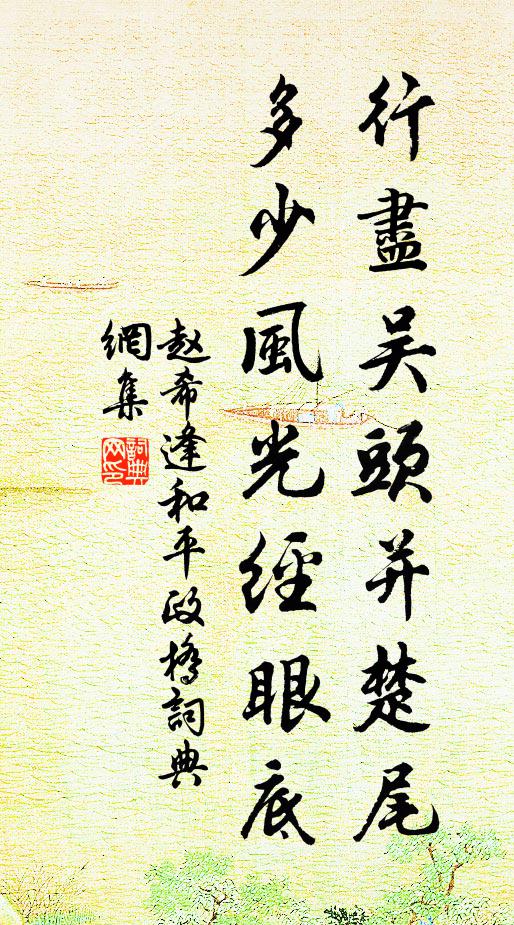 行盡吴頭并楚尾
多少風光經眼底
赵希逢和平政橋詞典
網集
詞典
网印